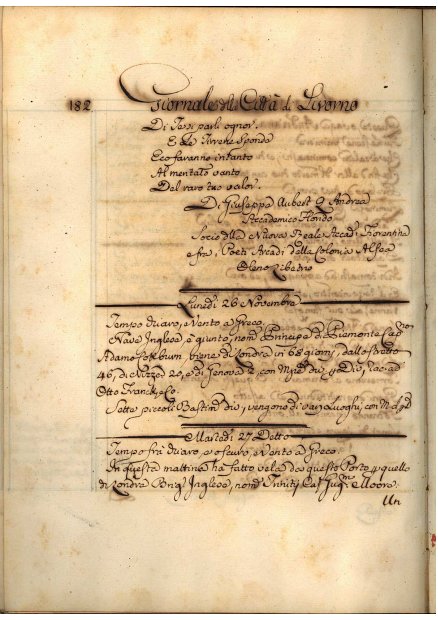 182 Giornale della Città di Livorno
Di Te si parli ognor.
E le Tirrene Sponde
Eco faranno intanto
Al mentato vanto
Del raro tuo valor.
Di Giuseppe Aubert Q Andrea
Accademico Flondo
Socio della Nuova Reale Accad. Fiorentina
e frà i Poeti Arcadi della Colonia Alfea
Lunedì 26 Novembre
Tempo chiaro, e Vento a Greco.
Nave Inglese, è giunto, nom. Principe di Piemonte Cap.no
Adamo viene di Londra in 68 giorni, dallo Stretto
46, di Nizza 20, e di Genova 2, con
Otto Franck, e Co.
Sette piccoli Bastim. div. vengono di varj Luoghi, con
Martedì 27 Detto
Tempo frà chiaro, e oscuro, e Vento a Greco.
In questa mattina ha fatto vela da questo Porto p quello
di Londra Brig. Inglese, nom. Cap. Moore.
Un